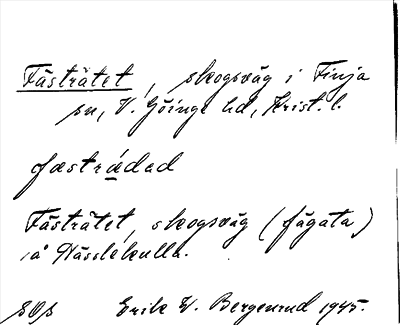 Fästrätet, skogsväg i Finja
sn, V. Göinge hd, Krist. l.
fæstrádad
Fästrätet, skogsväg (fägata)
i å Nässlekulla.
Erik W. Bergenrud 1945.